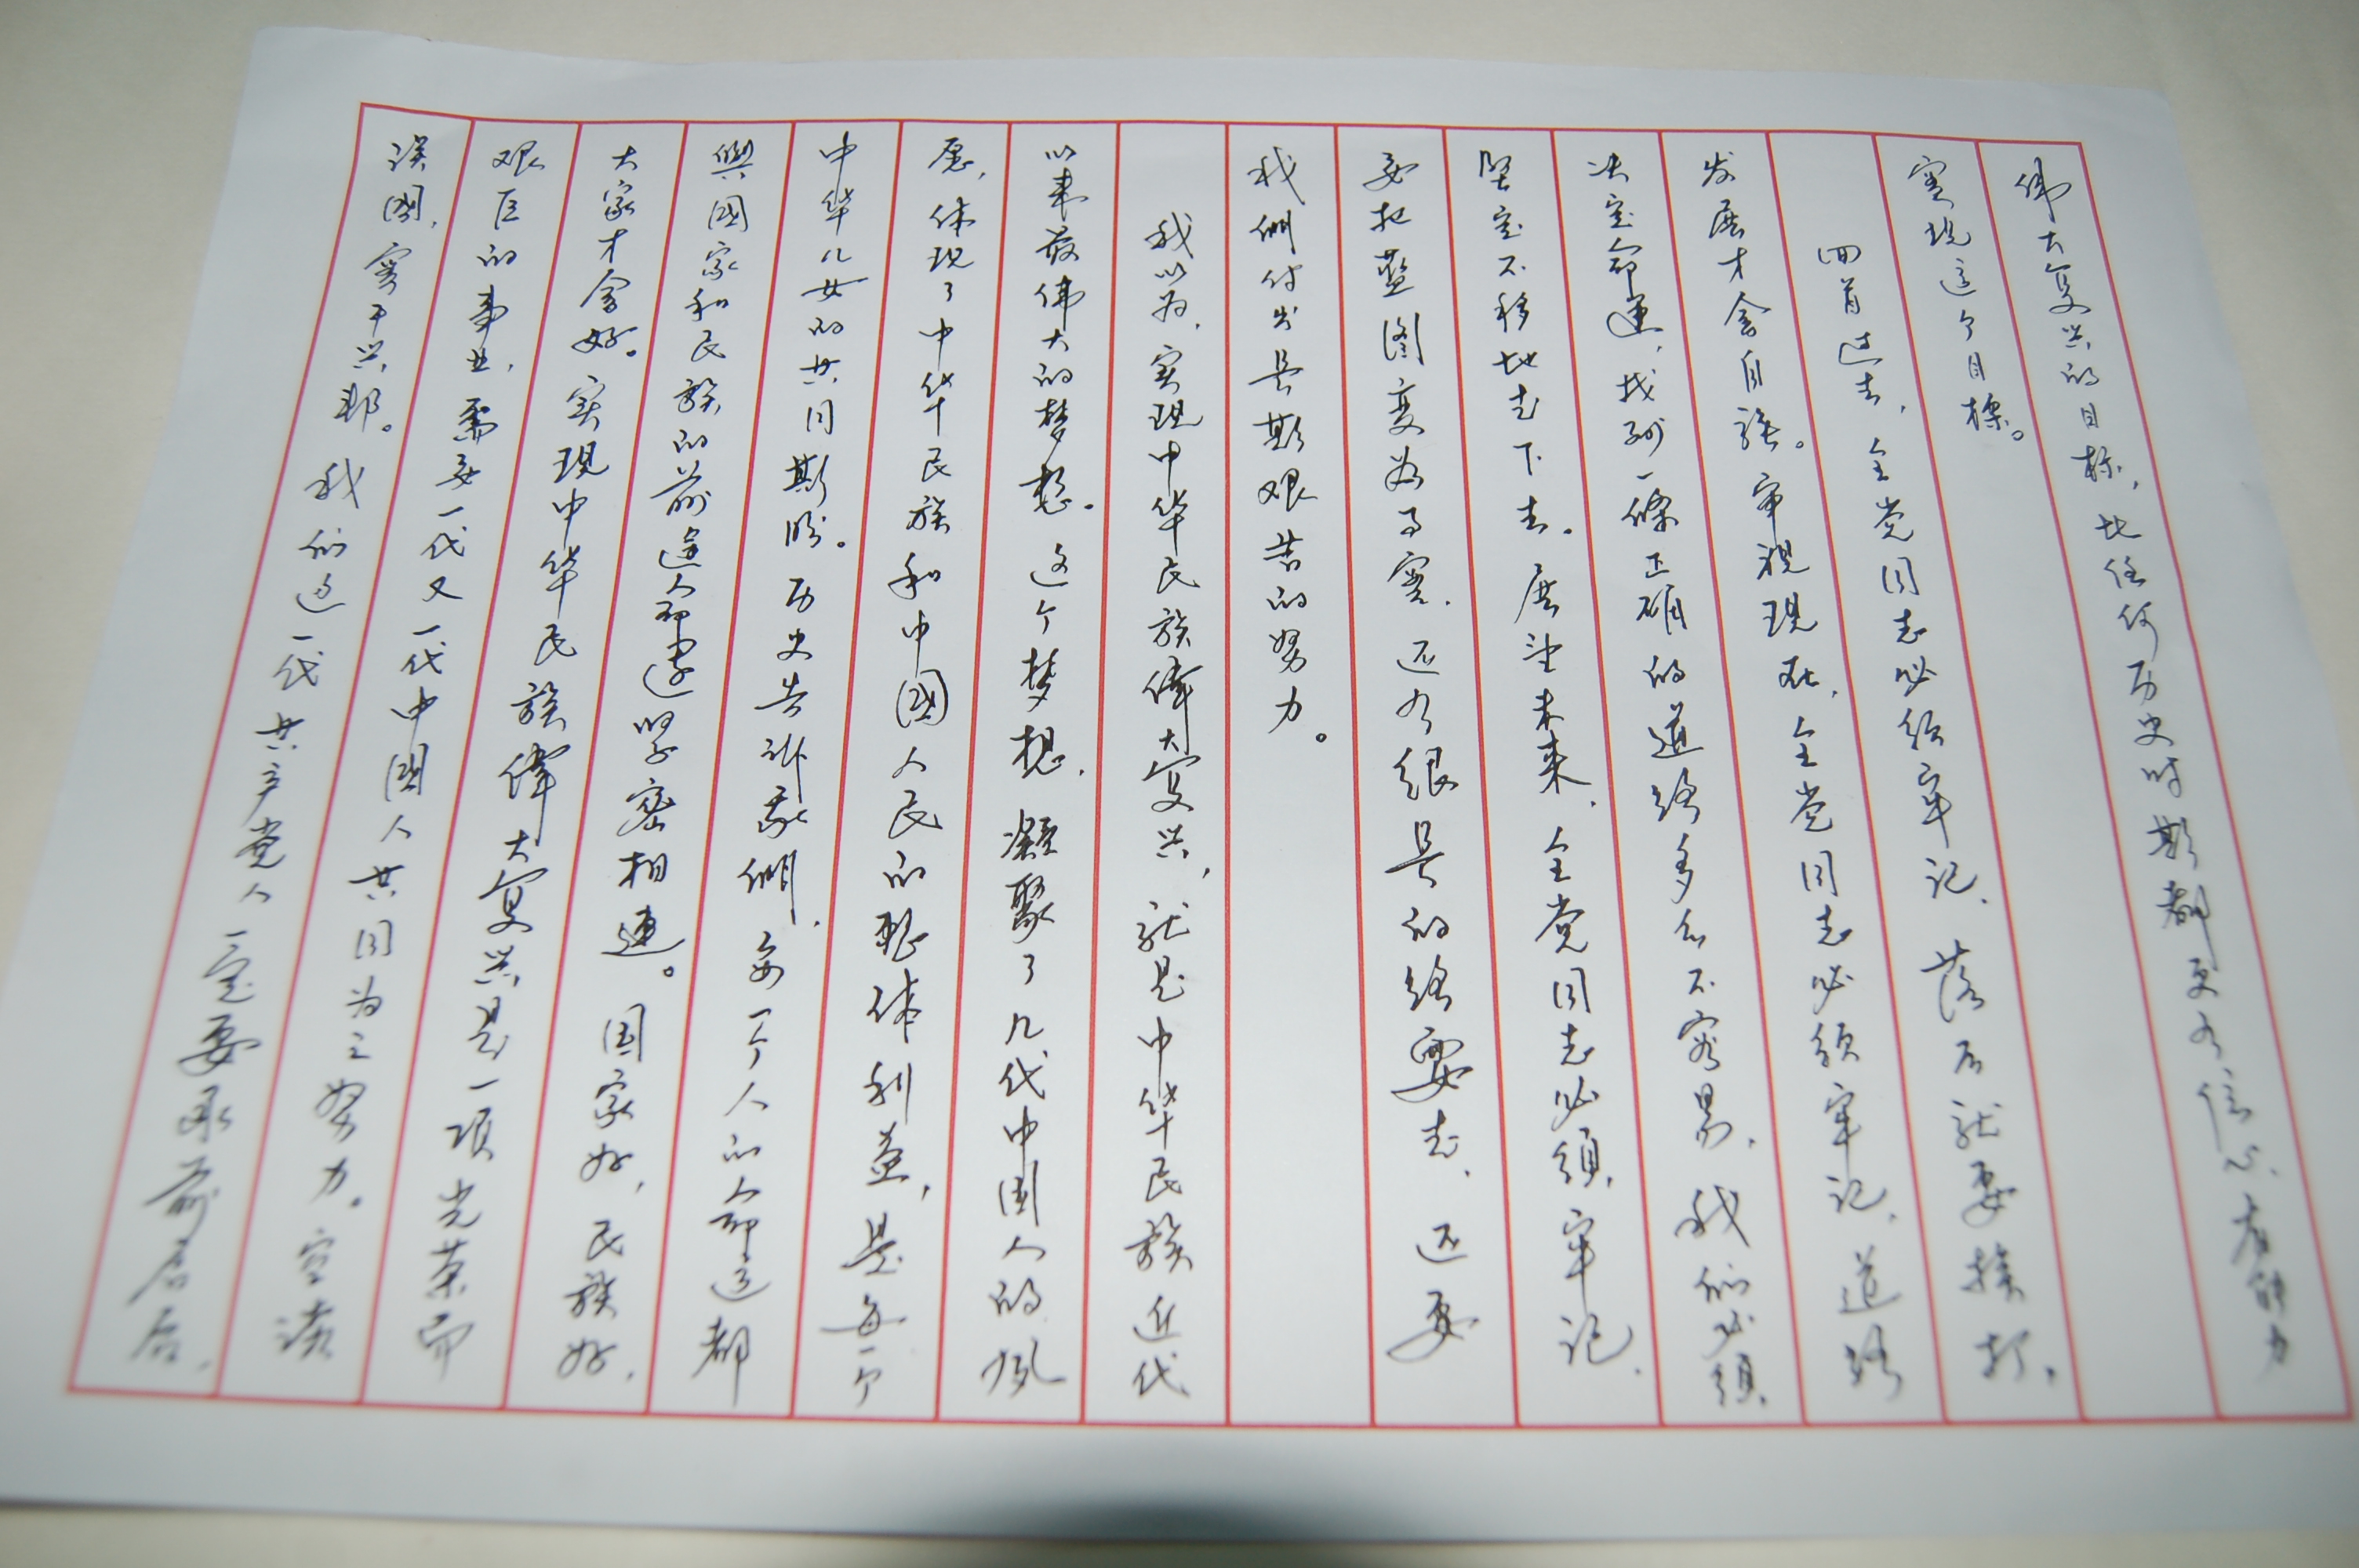 伟大复兴的目标,比任何历史时期都更有信心、有能力
实现这个目标。
回首过去,全党同志必须牢记,落后就要挨打,
发展才会自强。审视现在,全党同志必须牢记,道路
决定命運,找到一條正确的道路多么不容易,我们必須
坚定不移地走下去。展望未来,全党同志必須牢记,
要把蓝图变为现實,还有很長的路要走,还要
我們付出長期艰苦的努力。
我以为,实现中华民族偉大复兴,就是中华民族近代
以来最伟大的梦想。这个梦想,凝聚了几代中国人的夙
愿,体现了中华民族和中國人民的整体利益,是每一个
中华儿女的共同期盼。历史告訴我們,每一个人的命运都
與國家和民族的前途命運緊密相連。国家好,民族好,
大家才會好。实现中华民族偉大复兴是一项光荣而
艰巨的事业,需要一代又一代中國人共同为之努力。空谈
误國,实干兴邦。我们这一代共产党人一定要承前启后、